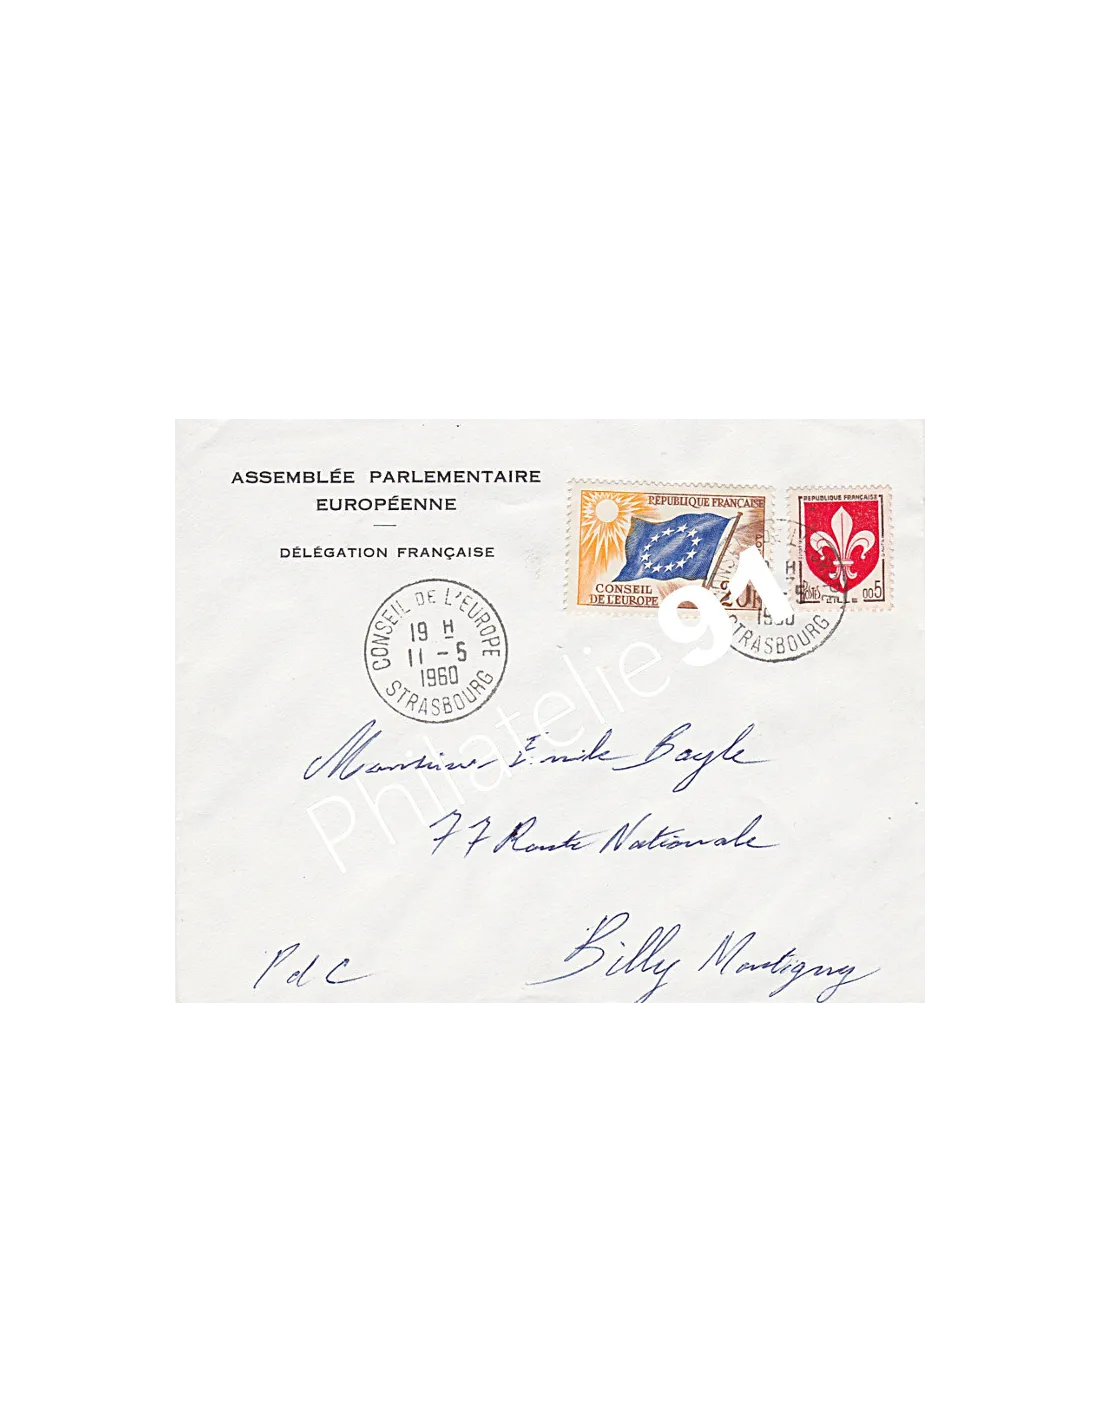 ASSEMBLÉE PARLEMENTAIRE
EUROPÉENNE
DÉLÉGATION FRANÇAISE
RÉPUBLIQUE FRANÇAISE
CONSEIL
DE L'EUROPE
20F
REPUBLIQUE FRANÇAISE
POSTES
LILLE
005
CONSEIL DE L'EUROPE
19 H
11 - 5
1960
STRASBOURG
19 H
1960
STRASBOURG
Philatelie 91
Monsieur Émile Bayle
77 Route Nationale
Billy Montigny
P d C